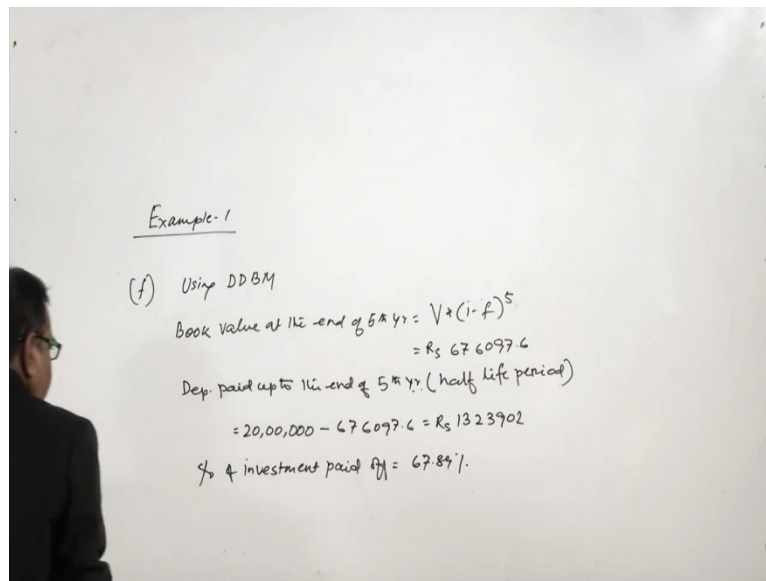 Example-1
(f) Using DDBM
Book Value at the end of 5th yr = V*(1-f)^5
= Rs 676097.6
Dep. paid upto the end of 5th yr. (half life period)
= 20,00,000 - 676097.6 = Rs 1323902
% of investment paid off = 67.89%.